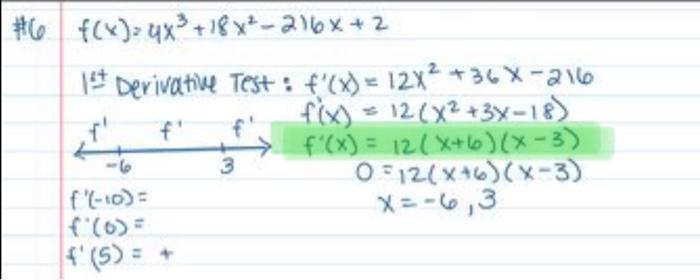 #6 f(x)=4x³+18x²-216x+2
1st Derivative Test: f'(x) = 12x² + 36x - 216
f'(x) = 12(x²+3x-18)
f' f' f' f'(x) = 12(x+6)(x-3)
-6 3 0=12(x+6)(x-3)
f'(-10)= x=-6,3
f'(0)=
f'(5) = +